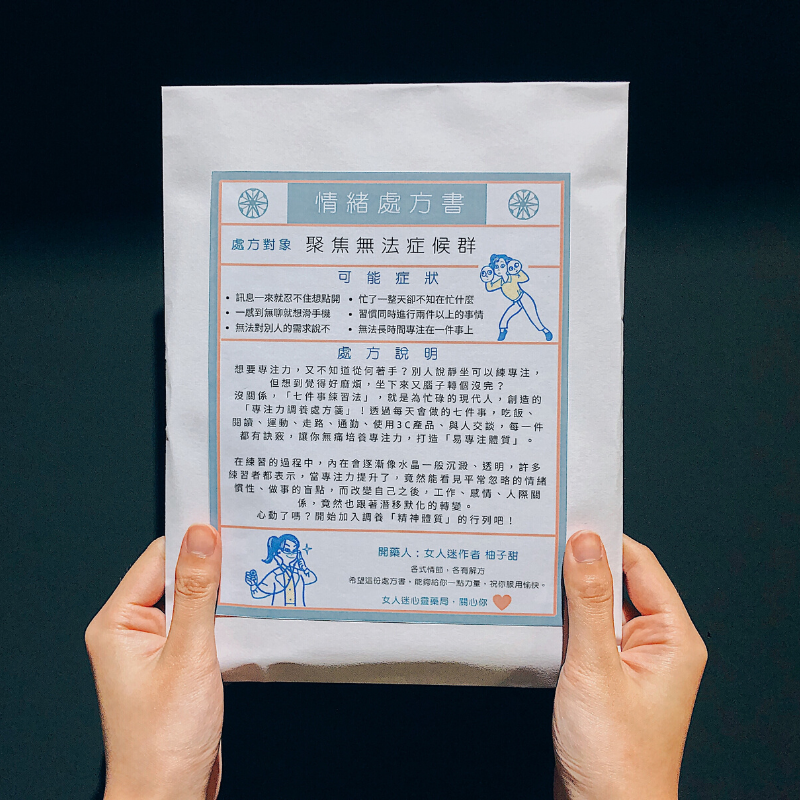 情緒處方書
處方對象 聚焦無法症候群
可能症狀
• 訊息一來就忍不住想點開 • 忙了一整天卻不知在忙什麼
• 一感到無聊就想滑手機 • 習慣同時進行兩件以上的事情
• 無法對別人的需求說不 • 無法長時間專注在一件事上
處方說明
想要專注力，又不知道從何著手？別人說靜坐可以練專注，
但想到覺得好麻煩，坐下來又腦子轉個沒完？
沒關係，「七件事練習法」，就是為忙碌的現代人，創造的
「專注力調養處方箋」！透過每天會做的七件事，吃飯、
閱讀、運動、走路、通勤、使用3C產品、與人交談，每一件
都有訣竅，讓你無痛培養專注力，打造「易專注體質」。
在練習的過程中，內在會逐漸像水晶一般沉澱、透明，許多
練習者都表示，當專注力提升了，竟然能看見平常忽略的情緒
慣性、做事的盲點，而改變自己之後，工作、感情、人際關
係，竟然也跟著潛移默化的轉變。
心動了嗎？開始加入調養「精神體質」的行列吧！
開藥人：女人迷作者 柚子甜
各式情節，各有解方
希望這份處方書，能夠給你一點力量，祝你服用愉快。
女人迷心靈藥局，關心你